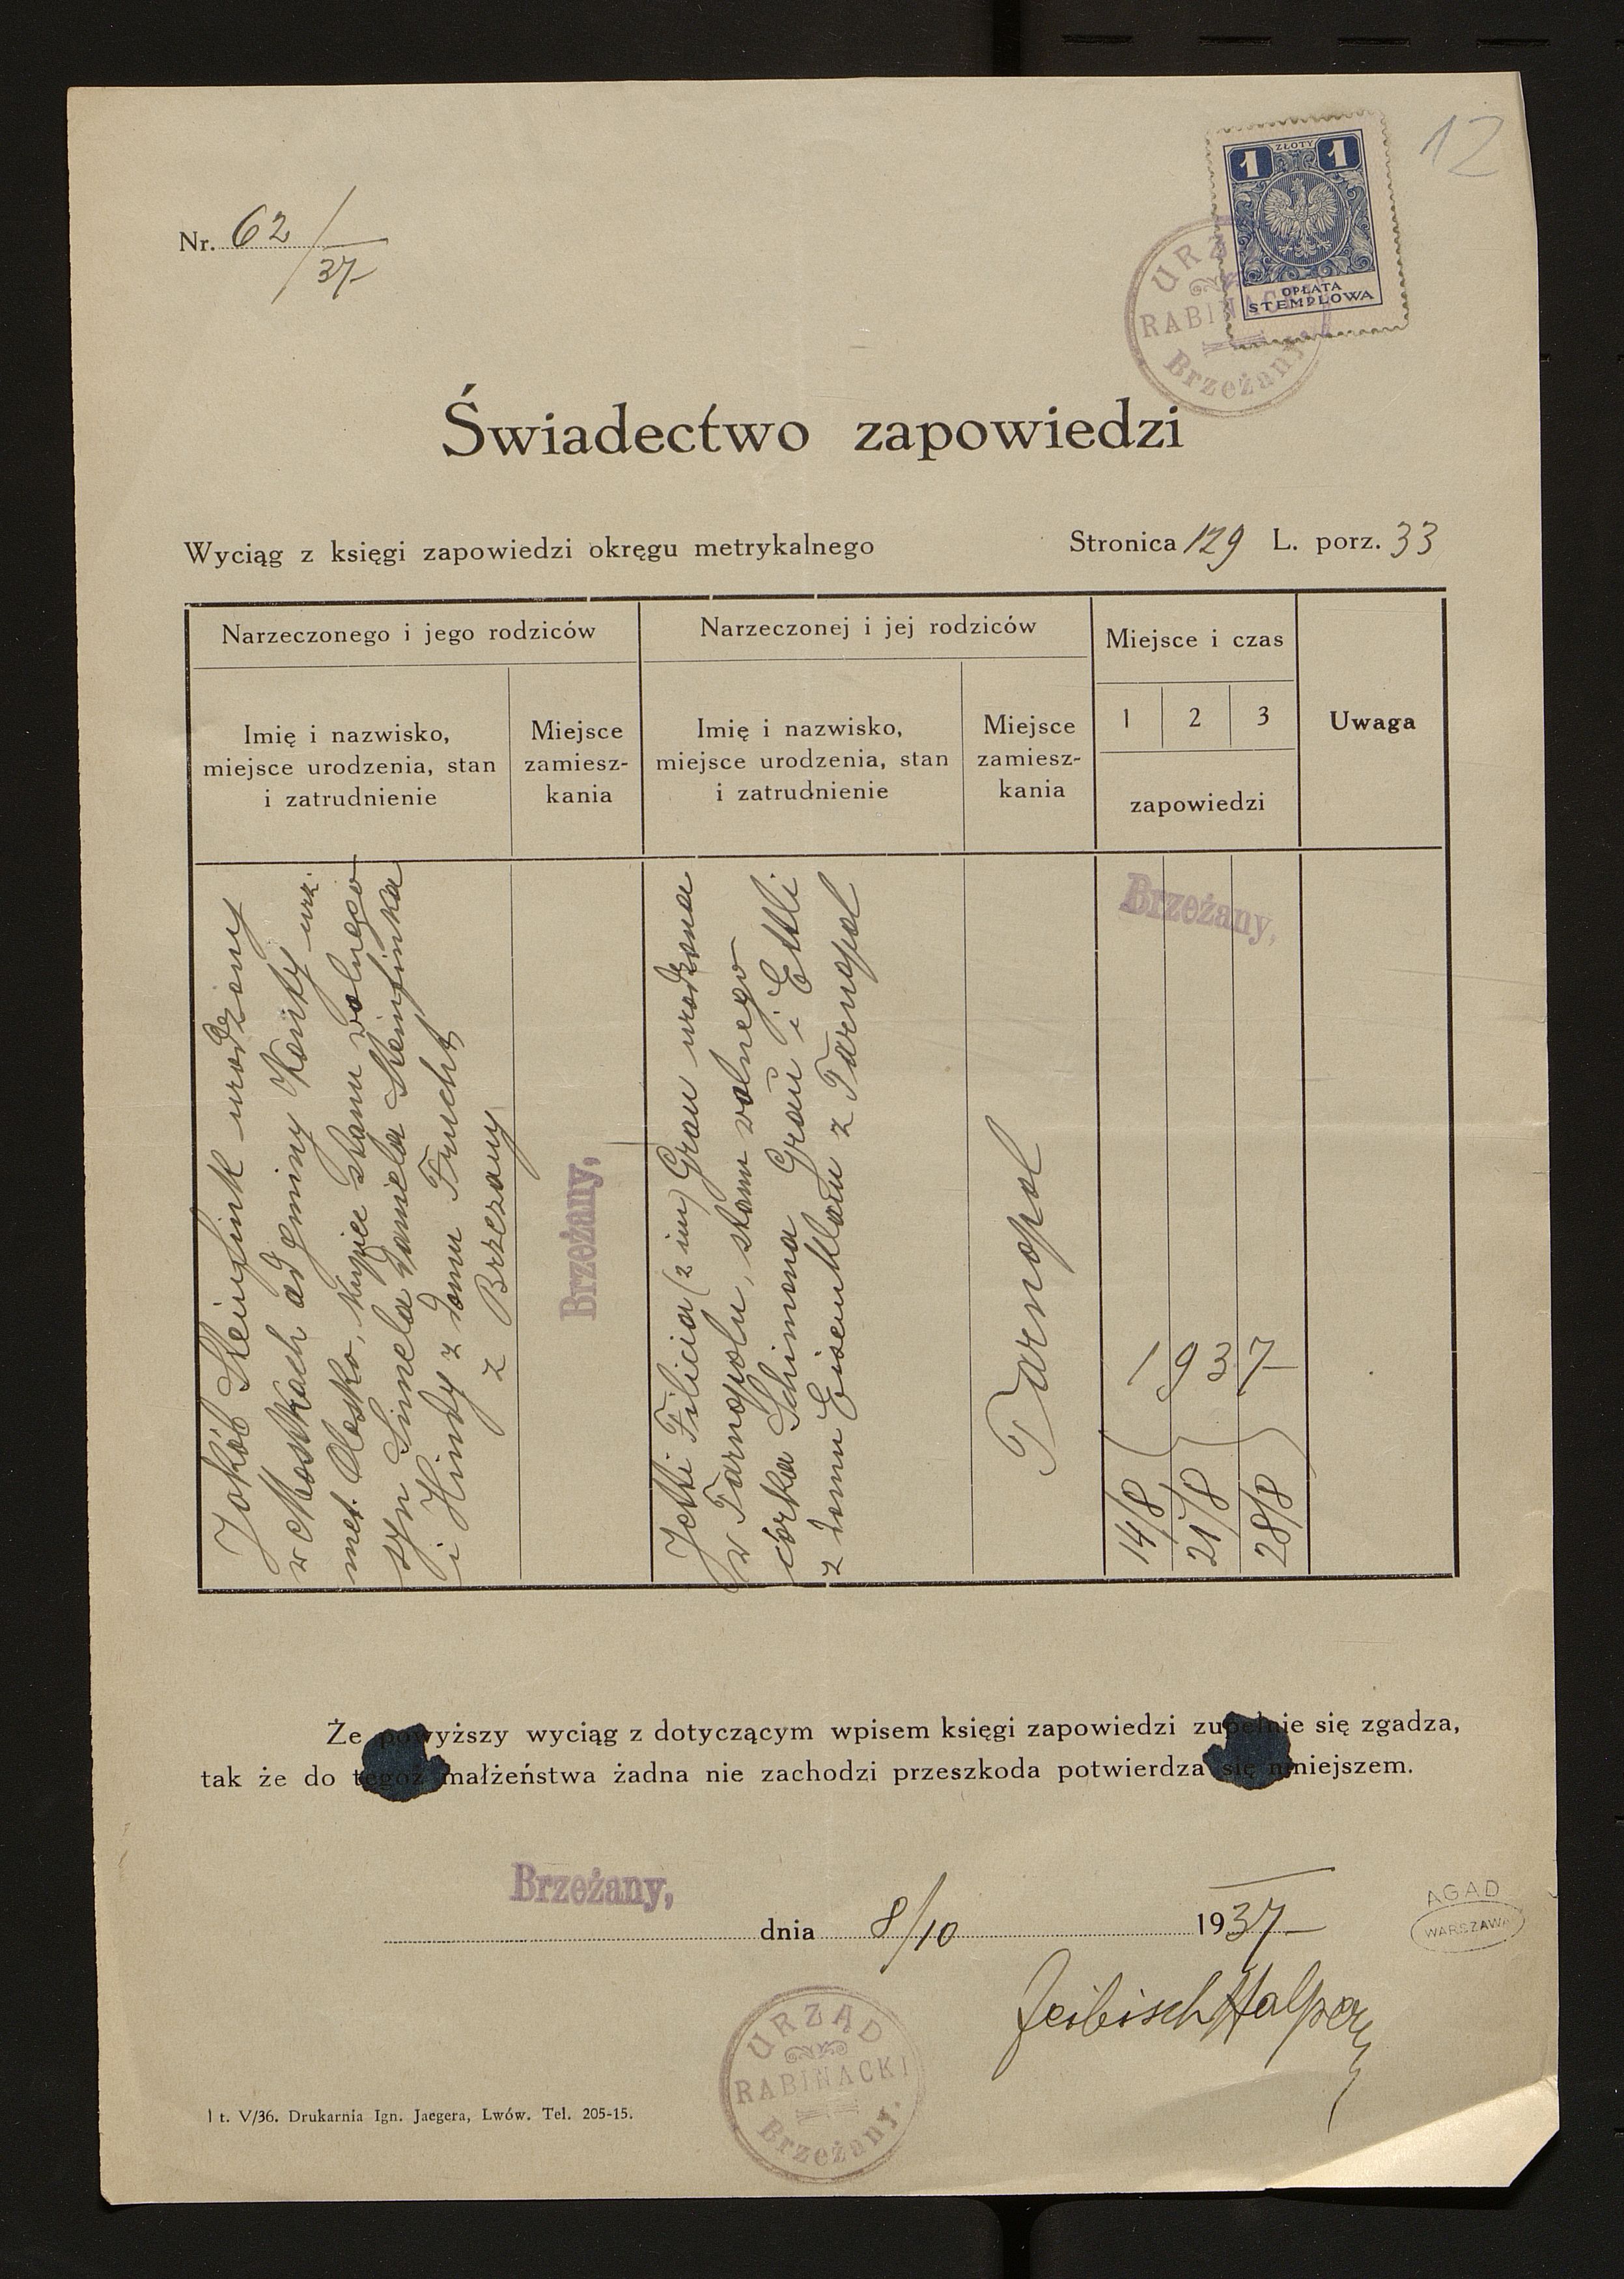 12
1 ZŁOTY 1
OPŁATA
STEMPLOWA
URZĄD
RABINACKI
Brzeżany.
Nr. 62/37
Świadectwo zapowiedzi
Wyciąg z księgi zapowiedzi okręgu metrykalnego Stronica 129 L. porz. 33
Narzeczonego i jego rodziców
Narzeczonej i jej rodziców
Miejsce i czas
Imię i nazwisko,
miejsce urodzenia, stan
i zatrudnienie
Miejsce
zamiesz-
kania
Imię i nazwisko,
miejsce urodzenia, stan
i zatrudnienie
Miejsce
zamiesz-
kania
1 2 3
zapowiedzi
Uwaga
Jakób Steinfink urodzony
w Mostkach ad gminy Konity urz.
met. Olesko, kupiec stanu wolnego
syn Simela Daniela Steinfinka
i Hindy z domu Frucht
z Brzeżany
Brzeżany,
Jetti Filicia (2 im) Grau urodzona
w Tarnopolu, stanu wolnego
córka Schimona Grau i Ettli
z domu z Tarnopol
Tarnopol
Brzeżany,
1937
14/8
21/8
28/8
Że powyższy wyciąg z dotyczącym wpisem księgi zapowiedzi zupełnie się zgadza,
tak że do tegoż małżeństwa żadna nie zachodzi przeszkoda potwierdza się niniejszem.
Brzeżany,
dnia 8/10 1937
AGAD
WARSZAWA
Feibisch Halpern
URZĄD
RABINACKI
Brzeżany.
1 t. V/36. Drukarnia Ign. Jaegera, Lwów. Tel. 205-15.